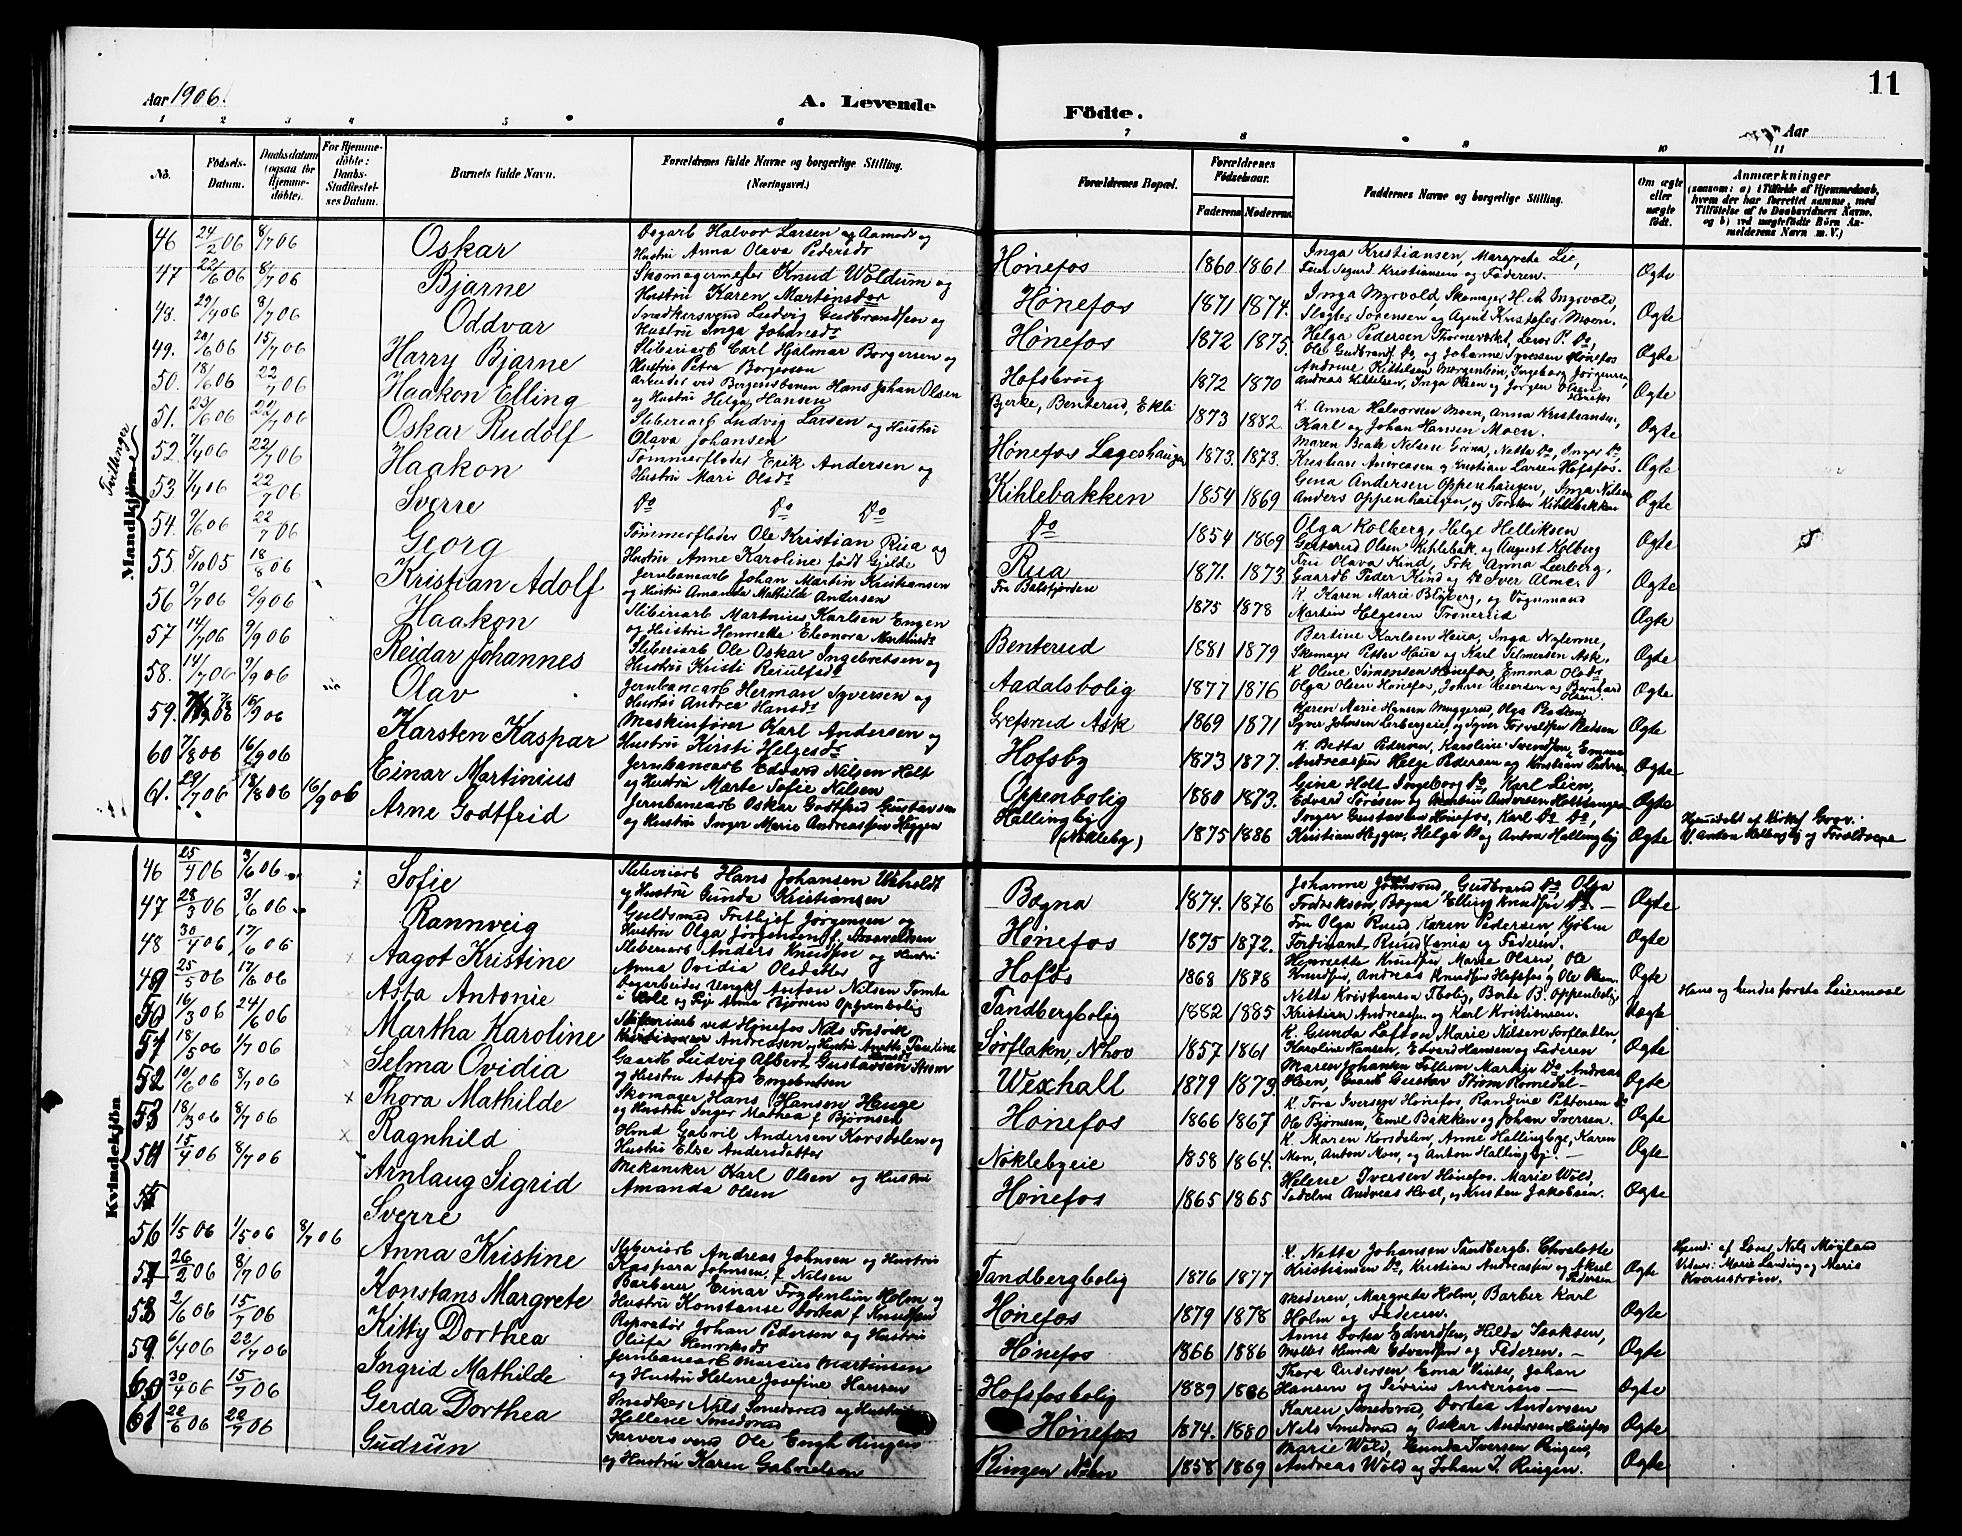 Aar 1906.
A. Levende
Födte.
11
Aar
1 2 3 4 5 6
7 8 9 10 11
No.
Födsels-Datum.
Daabsdatum (ogsaa for Hjemme-döbte).
For Hjemme-döbte: Daabs-Stadfæstel-ses Datum.
Barnets fulde Navn.
Forældrenes fulde Navne og borgerlige Stilling. (Næringsvei.)
Forældrenes Bopæl.
Forældrenes Födselsaar.
Faderens Moderens
Faddernes Navne og borgerlige Stilling.
Om ægte eller uægte född.
Anmærkninger
(saasom: a) i Tilfælde af Hjemmedaab, hvem der har forrettet samme, med Tilföielse af to Daabsvidners Navne, og b) ved uægtefödte Börn An-melderens Navn m. V.)
Mandkjön
Tvillinger
46 24/2 06 8/7 06 Oskar Dagarb Halvor Larsen og Hustru Anna Olava Pedersdr Hønefos 1860 1861 Inga Kristiansen, Margrete Lie, Sigurd Kristiansen og Faderen. Ægte
47 22/6 06 8/7 06 Bjarne Skomagermester Knud Woldum og Hustru Karen Martinsdr Hønefos 1871 1874. Inga Myrvold, Skomager H. A. Myrvold, Slagter Sørensen og Agent Kristofer Moen. Ægte
48. 29/4 06 8/7 06 Oddvar Snedkersvend Ludvig Gudbrandsen og Hustru Inga Johansdr Hønefos 1872 1875. Helga Pedersen Lars P. Do, Ole Gudbrands. Do og Johanne Syversen Hønefos Ægte
49. 20/6 06 15/7 06 Harry Bjarne Sliberiarb Carl Hjalmar Borgersen og Hustru Petra Borgerson Hofsbrug 1872 1870 Andrine Kittelsen Ingeborg Jørgensen, Andreas Kittelsen, Inga Olsen og Jørgen Olsen Hønefos Ægte
50. 18/6 06 22/7 06 Haakon Elling Arbeider ved Bergensbanen Hans Johan Olsen og Hustru Helga Hansen Bjerke, Benterud, Ekli 1873 1882 K. Anna Halvorsen Moen, Anna Kristiansen, Karl og Johan Hansen Moen. Ægte
51. 23/6 06 22/7 06 Oskar Rudolf Sliberiarb Ludvig Larsen og Hustru Olava Johansen Hønefos 1873. 1873. Maren Beate Nilsen Netta Do, Inger Do, Kristian Andreasen og Kristian Larsen Hofsfos. Ægte
52. 7/4 06 22/7 06 Haakon Tømmerfløder Erik Andersen og Hustru Mari Olsdr Kihlebakken 1854 1869 Gina Andersen Oppenhaugen, Inga Nilsen Anders Oppenhaugen, og Torsten Kihlebakken Ægte
53 7/4 06 22/7 06 Sverre Do Do Do Do 1854 1869 Olga Kolberg, Helge Helliksen Olsen Kihlebak. og August Kolberg Ægte
54. 9/6 06 22/7 06 Georg Tømmerfløder Ole Kristian Rua og Hustru Anne Karoline født Gjelde Rua 1871. 1873 Fru Olava Kind, Frk Anna Lerberg, Gaardb Peder Kind og Do Iver Alme. Ægte
55. 5/10 05 18/8 06 Kristian Adolf Jernbanearb Johan Martin Kristiansen og Hustru Amanda Mathilde Andersen Fra Balsfjorden 1875 1878 K. Karen Marie og Vognmand Martin Helgesen Tronerud Ægte
56. 9/7 06 2/9 06 Haakon Sliberiarb Martinius Karlsen Engen og Hustru Henrette Eleonora Benterud 1881 1879 Bertine Karlsen Inga Nylenne, Skomager Petter og Karl Ask. Ægte
57 14/7 06 9/9 06 Reidar Johannes Sliberiarb Ole Oskar Ingebretsen og Hustru Kristi Aadalsbolig 1877 1876 K. Oline Simensen Hønefos, Emma Olsdr Olga Olsen Hønefos, og Bernhard Olsen. Ægte
58. 14/7 06 9/9 06 Olav Jernbanearb Herman Syversen og Hustru Andrea Hansdr Grefsrud Ask 1869 1871 Karen Marie Hansen Muggerud, Olga Syver Johnsen og Syver Ægte
59. 16/9 06 Karsten Kaspar Maskinfører Karl Andersen og Hustru Kirsti Helgesdr Hofsby 1873 1877. K. Betta Pedersen, Karoline Svendsen, Emma Andreassen Helge Pedersen og Kristian Pedersen Ægte
60 7/8 06 16/9 06 Einar Martinius Jernbanearb Edvard Nilsen Holt og Hustru Marte Sofie Nilsen Oppenbolig 1880 1873. Gina Holt Ingeborg Do, Karl Lien, Edvard og Martin Andersen Ægte
61. 29/7 06 18/8 06 16/9 06 Arne Godtfrid Jernbanearb Oskar Godtfred Gustavsen og Hustru Inger Marie Andreassen Heggen Hallingby (Nokleby) 1875 1886 Inger Gustavsen Hønefos, Karl Do Do, Kristian Heggen, Helga Do og Anton Hallingby Ægte Hjemdøbt af V. Anton Hallingby og Forældrene
Kvindekjön
46 25/4 06 3/6 06 Sofie Sliberiarb Hans Johansen og Hustru Gunda Kristiansen Bægna 1874. 1876 Johanne Gudbrand Do Olga Fredriksen Bægna Elling Knudsen Do. Ægte
47 28/3 06 3/6 06 Rannveig Guldsmed Frithjof Jørgensen og Hustru Olga Jørgensen f. Hønefos 1875 1872. Fru Olga Ruud, Karen Pedersen Ferdinant Ruud og Faderen. Ægte
48 30/4 06 17/6 06 Aagot Kristine Sliberiarb Anders Knudsen og Hustru Anna Ovidia Olsdatter Hofos 1868 1878 Henriette Knudsen, Marie Olsen, Ole Knudsen, Andreas Knudsen Hofsfos og Ole Olsen. Ægte
49 25/5 06 17/6 06 Asta Antonie Dagarbeider Ungkf Anton Nilsen Tomta og Pige Anna Bjørnsen Oppenbolig Tandbergbolig 1882 1885 Netta Kristiansen Berte B. Oppenbolig, Kristian Andreasen og Karl Kristiansen. Uægte Hans og hendes første Leiermaal
50 16/3 06 24/6 06 Martha Karoline Sliberiarb ved Hønefos Nils Fredrik Andreasen og Hustru Anette Pauline Sørflakn, Nhov 1857 1861 K. Gunda Marie Nilsen Karoline Hansen, Edvard Hansen og Faderen Ægte
51 18/5 06 1/7 06 Selma Ovidia Gaardb Ludvig Albert Gustavsen Strøm og Hustru Astrid Engebretsen Wexhall 1879 1873 Maren Johansen Follum Martin Do, Andreas Gustav Strøm Ægte
52 10/6 06 8/7 06 Thora Mathilde Skomager Hans Hansen Hauge og Hustru Inger Mathea f Bjørnsen Hønefos 1866 1867 K. Tora Iversen Hønefos, Randine Pettersen Do Ole Bjørnsen, Emil Bakken og Johan Iversen. Ægte
53 18/3 06 8/7 06 Ragnhild Hmd Gabriel Andersen Korsdalen og Hustru Else Andersdatter Noklebyeie 1858 1864. K. Maren Korsdalen, Anne Hallingbye, Karen Moen, Anton Moen, og Anton Hallingby. Ægte
54 15/4 06 8/7 06 Arnlaug Sigrid Mekaniker Karl Olsen og Hustru Amanda Olsen Hønefos 1865 1865 Helene Iversen Hønefos. Marie Wold, Andreas og Kristen Jakobsen. Ægte
55 Sverre
56 1/5 06 1/5 06 8/7 06 Anna Kristine Sliberiarb Andreas Johnsen og Hustru Kaspara Johnsen f Nilsen Tandbergbolig 1876 1877 K. Netta Johansen Tandbergb. Charlotte Kristiansen Do, Kristian Andreasen og Aksel Pedersen Ægte Hjemd: af Nils Møgland Vidner: Marie Landing og Maria Kvernstrøm.
57 26/2 06 8/7 06 Konstans Margrete Barberer Einar Frydenlun Holm og Hustru Konstanse Dortea f Knudsen Hønefos 1879 1878 Moderen, Margrete Holm, Barber Karl Holm og Faderen. Ægte
58 2/6 06 15/7 06 Kitty Dorthea Reparatør Johan Pedersen og Hustru Olufa Henriksdr Hønefos 1866 1886 Anne Dortea Edvardsen, Hilda Isaksen, Møller Henrik Edvardsen og Faderen. Ægte
59 6/4 06 22/7 06 Ingrid Mathilde Jernbanearb Marius Martinsen og Hustru Helene Josefine Hansen Hofsfosbolig 1889 1886 Thora Andersen, Ema Johan Hansen og Severin Andersen Ægte
60 30/4 06 15/7 06 Gerda Dorthea Snedker Nils Smedsrud og Hustru Hellene Smedsrud Hønefos 1874. 1880 Karen Smedsrud, Dortea Andersen Nils Smedsrud og Oskar Andersen Hønefos Ægte
61 22/6 06 22/7 06 Gudrun Garversvend Ole Engh Ringen og Hustru Karen Gabrielsen Ringen 1858 1869 Marie Wold, Gunda Iversen Ringen, Andreas Wold og Johan I. Ringen. Ægte